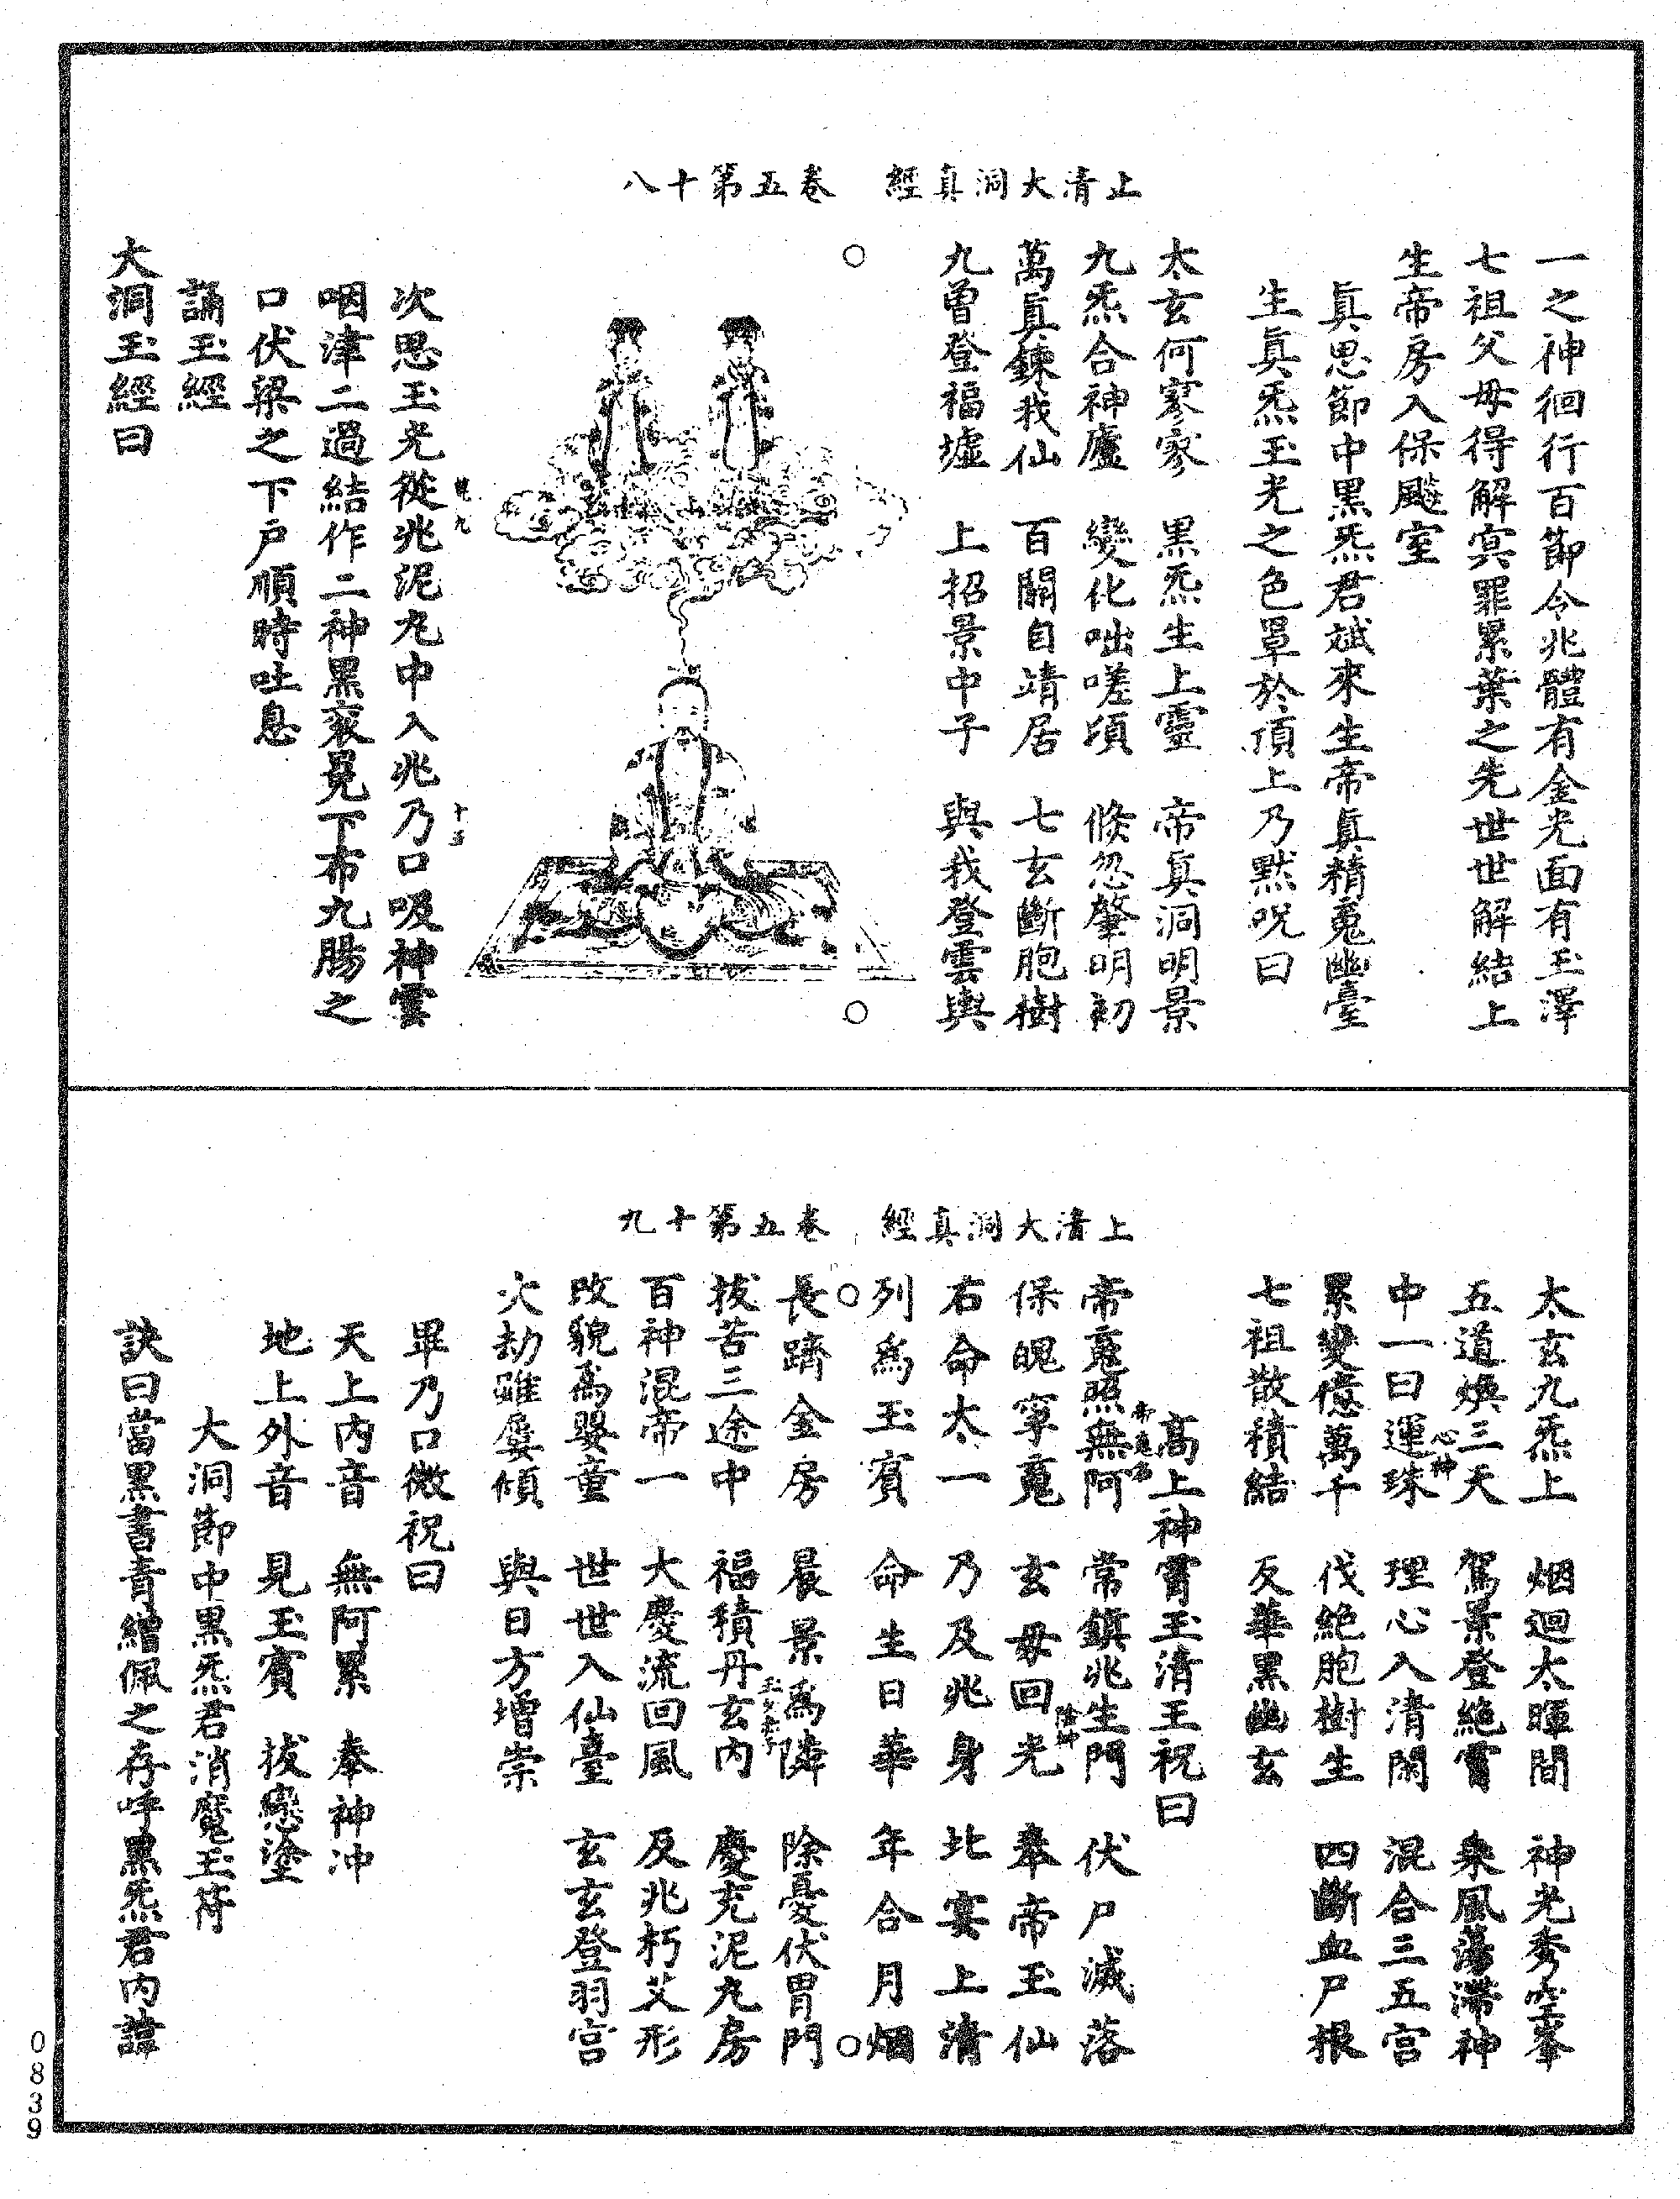 上清大洞真經　卷五第十八
一之神徊行百節令兆體有金光面有玉澤
七祖父母得解冥罪累葉之先世世解結上
生帝房入保飈室
真思節中黑炁君斌來生帝真精䰟幽臺
生真炁玉光之色罩於頂上乃默呪曰
太玄何寥寥　黑炁生上靈　帝真洞明景
九炁合神廬　變化咄嗟頃　倏忽肇明初
萬真鍊我仙　百關自靖居　七玄斷胞樹
九曾登福墟　上招景中子　與我登雲輿
○　○
次思玉光從兆泥丸中入兆乃口吸神雲
咽津二過結作二神黑衮冕下布九腸之
口伏梁之下戶順時吐息
誦玉經
大洞玉經曰
上清大洞真經　卷五第十九
太玄九炁上　烟迴太暉間　神光秀空峯
五道煥三天　駕景登絶霄　乘風蕩滯神
中一曰運珠　理心入清閑　混合三五宮
心神
累變億萬千　伐絶胞樹生　四斷血尸根
七祖散積結　反華黑幽玄
高上神霄玉清王祝曰
帝䰟照無阿　常鎮兆生門　伏尸滅落
保魄寧䰟　玄母回光　奉帝玉仙
右命太一　乃及兆身　北宴上清
列為玉賓　命生日華　年合月烟
○　○
長躋金房　晨景為隣　除憂伏胃門
拔苦三途中　福積丹玄內　慶充泥丸房
百神混帝一　大慶流回風　反兆朽艾形
改貌為嬰童　世世入仙臺　玄玄登羽宮
火劫雖屢傾　與日方增崇
畢乃口微祝曰
天上內音　無阿累　奉神沖
地上外音　見玉賓　拔戀塗
大洞節中黑炁君消魔玉符
訣曰當黑書青繒佩之存呼黑炁君內諱
0839